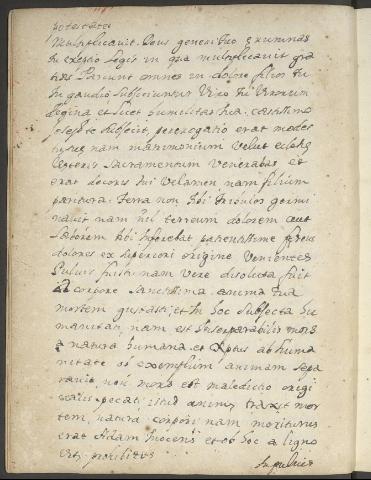 potestates
Multiplicavit. Deus generi tuo exumnas
tu exceptio Legis in qua multiplicavit gra
tias Pariunt omnes in dolore filios tu
in gaudio subijciuntur Viro tu Virorum
Regina et licet humilitas tua castissimo
Joseph te subjecit, prerogatio erat modes
nam matrimonium velut
Sacramentum Venerabas et
erat decoris tui Velamen nam filium
paritura. Terra non tibi tribulos germi
navit nam nil terreum dolorem
laborem tibi inferebat patientissime fereus
dolores ex superiori origine Venientes
Pulvis fuisti nam vere disoluta fuit
a corpore Sanctissima anima tua
mortem gustasti, et in hoc subjecta hu
manitati, nam est inseparabilis mors
a natura humana et Xptus ab huma
nitate sui exemplum animam sepa
ravit, non mors est maledictio origi
nalis pecati, istud animis traxit mor
tem, natura corpori nam moriturus
erat Adam Inocens et ob hoc a ligno
Vitae prohibitus